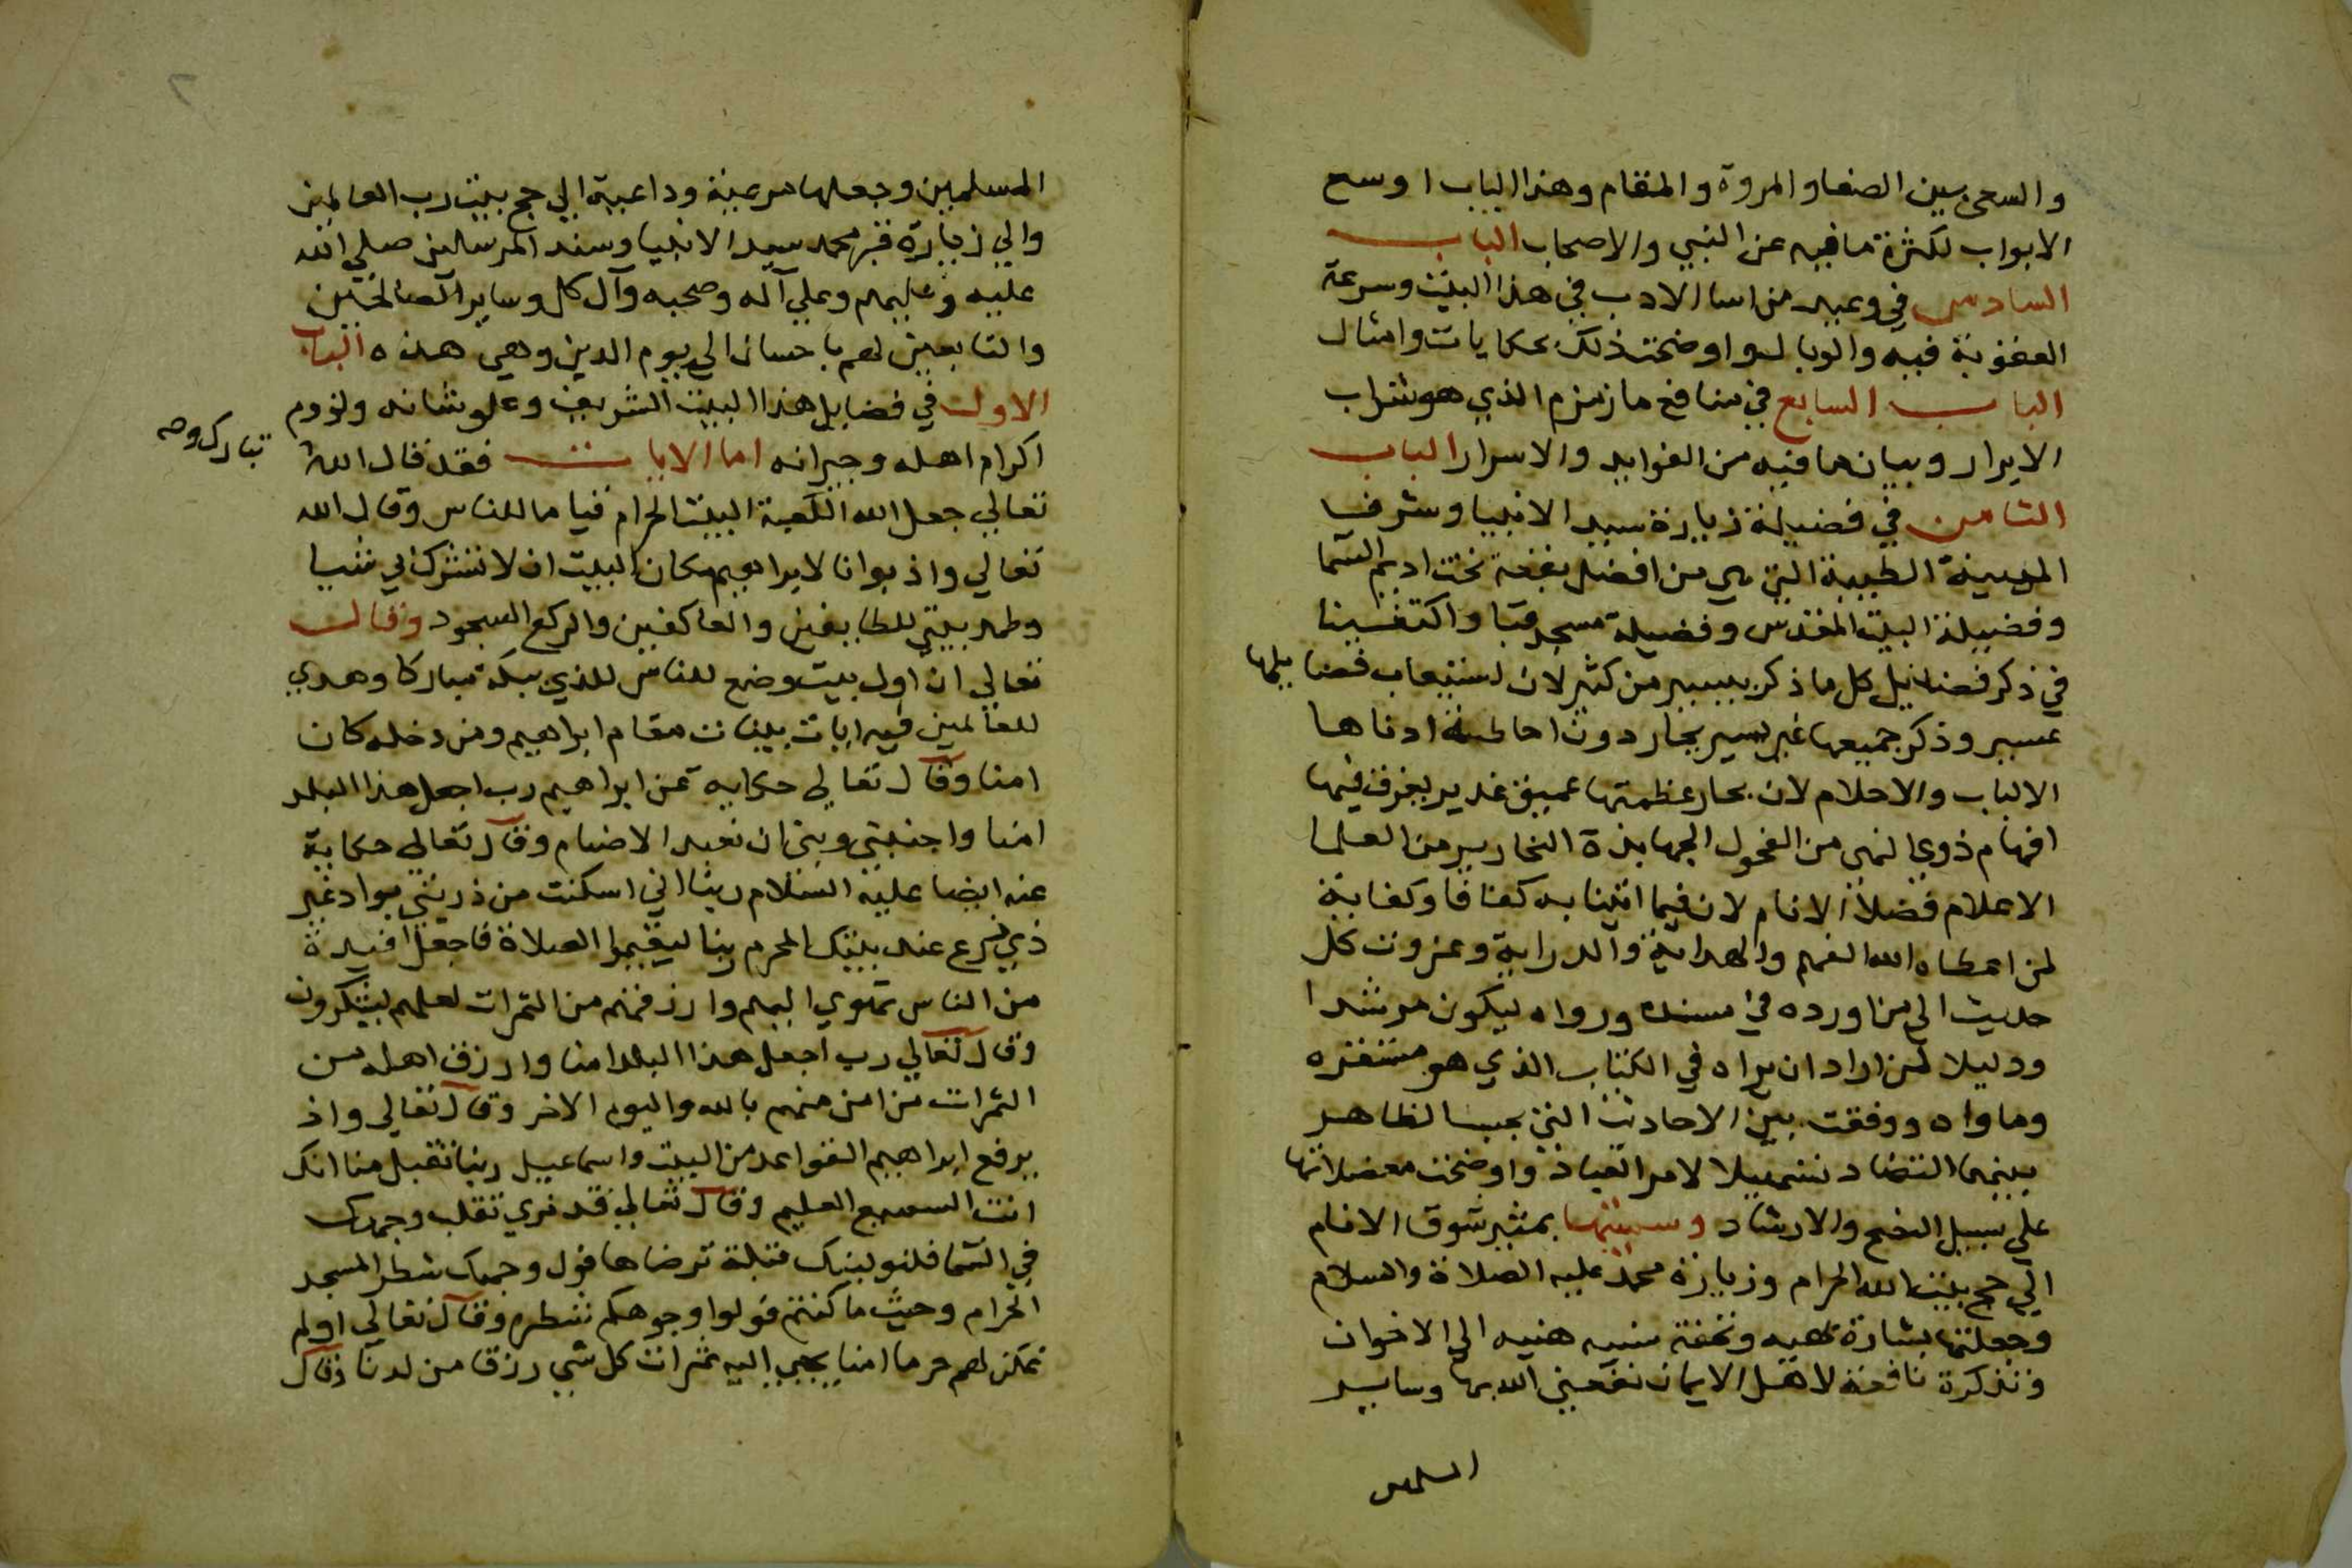 والسعي بين الصفا والمروة والمقام وهذا الباب اوسع
الابواب لكثرة ما فيه عن النبي والاصحاب الباب
السادس في وعيد من اسا الادب في هذا البيت وسرعة
العقوبة فيه والوبال واوضحت ذلك بحكايات وامثال
الباب السابع في منافع ما زمزم الذي هو شراب
الابرار وبيان ما فيه من الفوايد والاسرار الباب
الثامن في فضيلة زيارة سيد الانبيا وشرف
المدينة الطيبة التي هي من افضل بقعة تحت اديم السما
وفضيلة البيت المقدس وفضيلة مسجد قبا واكتفينا
في ذكر فضائل كل ما ذكر بيسير من كثير لان استيعاب فضايلها
عسير وذكر جميعها غير يسير بحار دون احاطة ادناها
الالباب والاحلام لان بحار عظمتها عميق غدير يغرف فيها
افهام ذوي النهى من الفحول الجهابذة النحارير من العلما
الاعلام فضلا الانام لان فيما اتينا به كفافا وكفاية
لمن اعطاه الله الفهم والهداية والدراية وعزوت كل
حديث الي من اورده في مسنده ورواه ليكون مرشدا
ودليلا لمن اراد ان يراه في الكتاب الذي هو مستقره
وماواه ووفقت بين الاحاديث التي بحسب الظاهر
بينهما التضاد تسهيلا لامر العباد واوضحت معضلاتها
علي سبيل النصح والارشاد وسميتها بمثير شوق الانام
الي حج بيت الله الحرام وزيارة محمد عليه الصلاة والسلام
وجعلتها بشارة بهيه وتحفة سنيه هنيه الي الاخوان
وتذكرة نافعة لاهل الايمان نفعني الله بها وساير
المسلمين
المسلمين وجعلها مرغبة وداعية الي حج بيت رب العالمين
والي زيارة قبر محمد سيد الانبيا وسند المرسلين صلي الله
عليه وعليهم وعلي آله وصحبه وآل كل وساير الصالحين
والتابعين لهم باحسان الي يوم الدين وهي هذه الباب
الاول في فضايل هذا البيت الشريف وعلو شانه ولزوم
اكرام اهله وجيرانه اما الايات فقد قال الله
تبارك و
تعالي جعل الله الكعبة البيت الحرام قياما للناس وقال الله
تعالي واذ بوانا لابراهيم مكان البيت ان لا تشرك بي شيا
وطهر بيتي للطايفين والعاكفين والركع السجود وقال
تعالي ان اول بيت وضع للناس للذي ببكة مباركا وهدي
للعالمين فيه ايات بينات مقام ابراهيم ومن دخله كان
امنا وقال تعالي حكاية عن ابراهيم رب اجعل هذا البلد
امنا واجنبني وبني ان نعبد الاصنام وقال تعالي حكاية
عنه ايضا عليه السلام ربنا اني اسكنت من ذريتي بواد غير
ذي زرع عند بيتك المحرم ربنا ليقيموا الصلاة فاجعل افيدة
من الناس تهوي اليهم وارزقهم من الثمرات لعلهم يشكرون
وقال تعالي رب اجعل هذا البلد امنا وارزق اهله من
الثمرات من امن منهم بالله واليوم الاخر وقال تعالي واذ
يرفع ابراهيم القواعد من البيت واسماعيل ربنا تقبل منا انك
انت السميع العليم وقال تعالي قد نري تقلب وجهك
في السما فلنولينك قبلة ترضاها فول وجهك شطر المسجد
الحرام وحيث ما كنتم فولوا وجوهكم شطره وقال تعالي اولم
نمكن لهم حرما امنا يجبي اليه ثمرات كل شي رزقا من لدنا وقال